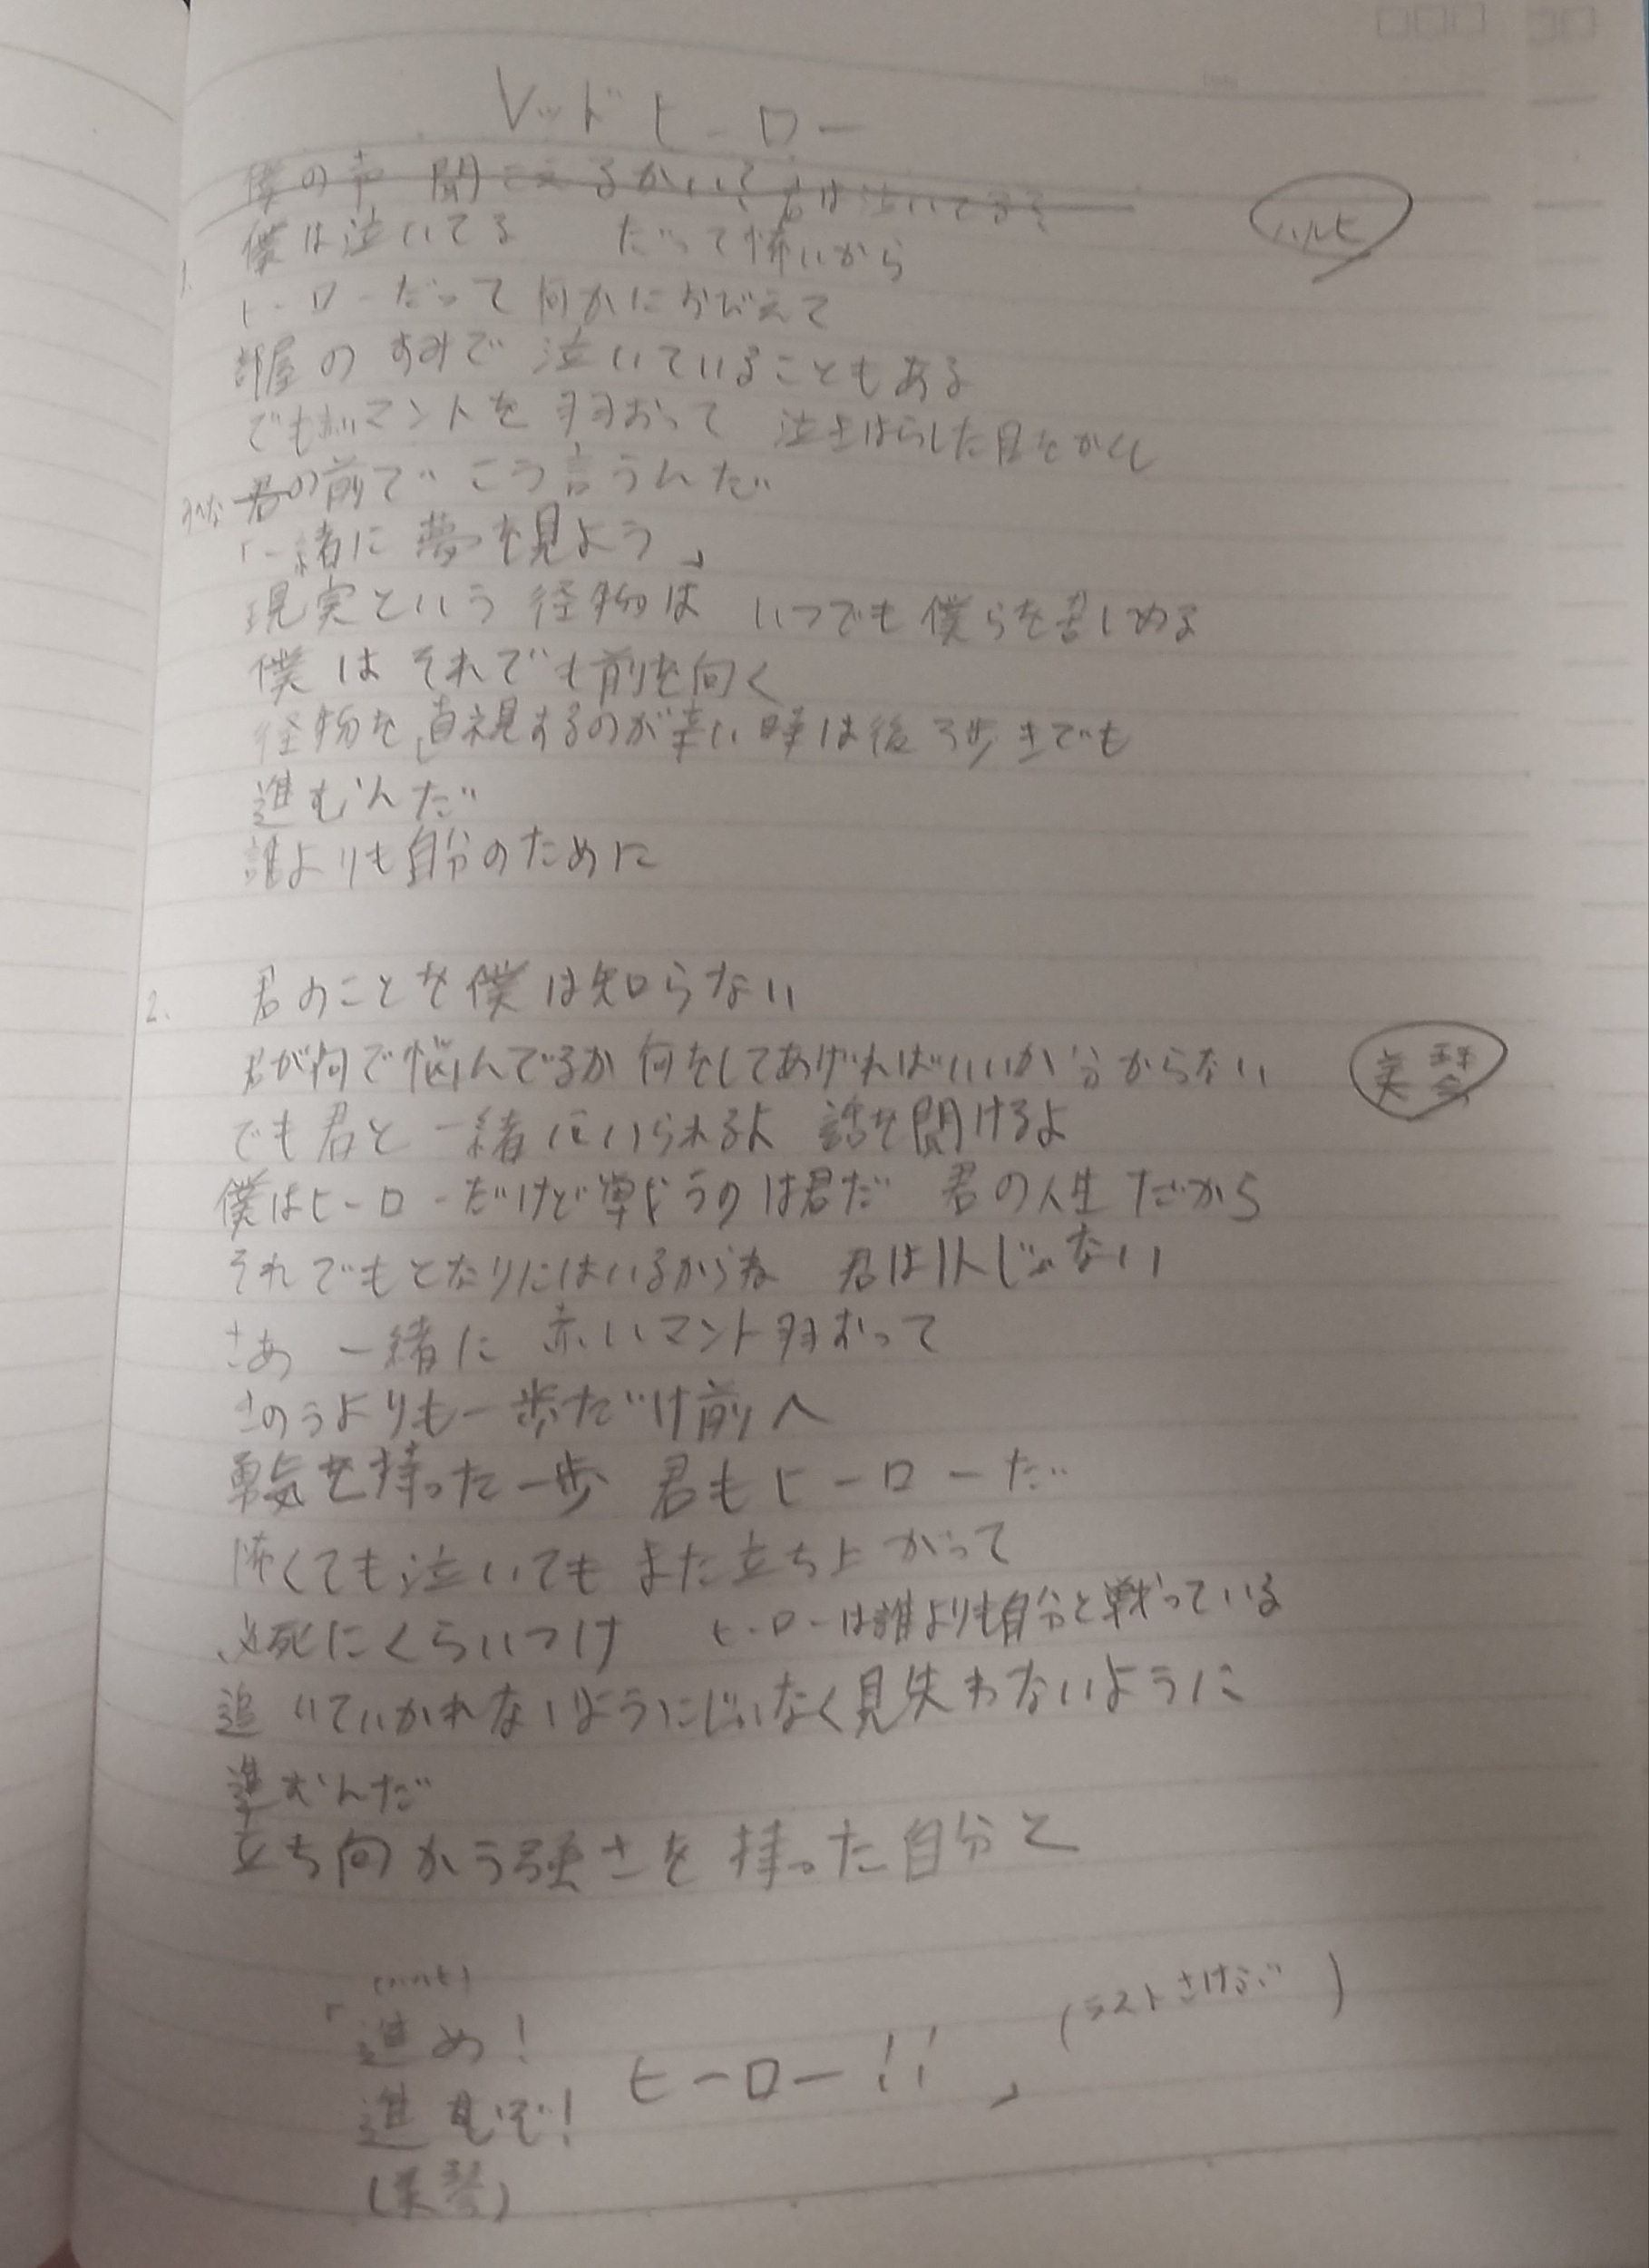 レッドヒーロー
僕の声 聞こえるかい? 君は泣いてる?
ハルヒ
1. 僕は泣いてる だって怖いから
ヒーローだって何かにおびえて
部屋のすみで 泣いていることもある
でもマントを羽おって 泣きはらした目をかくし
みんな 君の前で こう言うんだ
「一緒に夢を見よう」
現実という 径物は いつでも僕らを苦しめる
僕は それでも前を向く
径物を直視するのが辛い時は後ろ歩きでも
進むんだ
誰よりも自分のために
2. 君のことを僕は知らない
君が何で悩んでるか 何をしてあげればいいか分からない
美琴
でも君と一緒にいられるよ 話を聞けるよ
僕はヒーローだけど戦うのは君だ 君の人生だから
それでもとなりにはいるからね 君は1人じゃない
さあ 一緒に 赤いマント羽おって
きのうよりも一歩だけ前へ
勇気を持った一歩 君もヒーローだ
怖くても泣いても また立ち上がって
必死にくらいつけ ヒーローは誰よりも自分と戦っている
追いていかれないようにじゃなく見失わないように
進むんだ
立ち向かう強さを 持った自分と
(ハルヒ)
「進め!
進むぞ! ヒーロー!!」 (ラストさけぶ)
(美琴)